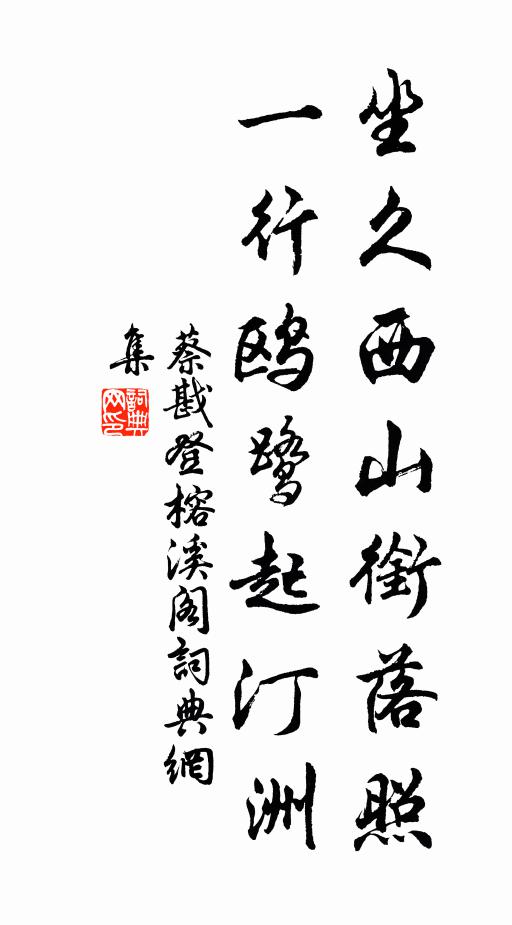 坐久西山銜落照
一行鸥鹭起汀洲
蔡戡登榕溪阁詞典網
集
詞典
网印